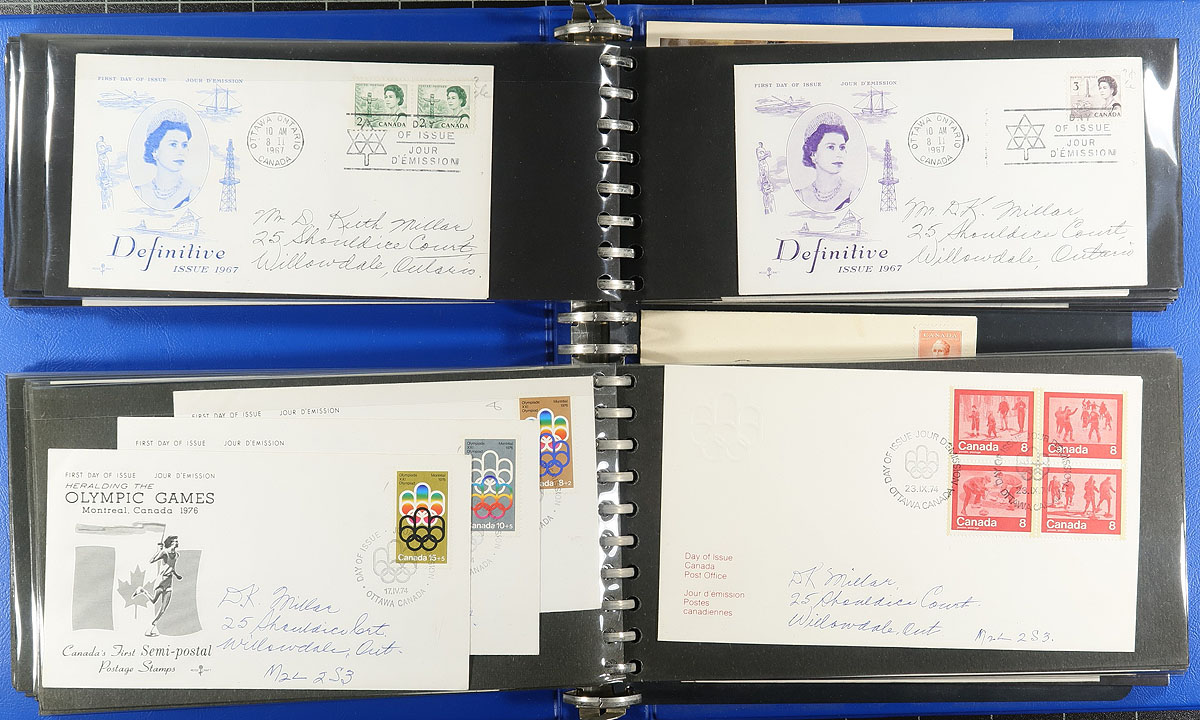 FIRST DAY OF ISSUE JOUR D'EMISSION
2 2 CANADA
OTTAWA ONTARIO
10 AM
8 II
1967
CANADA
OF ISSUE
JOUR
D'ÉMISSION
Definitive
ISSUE 1967
Mr D. Keith Millar,
25 Shouldice Court,
Willowdale, Ontario.
FIRST DAY OF ISSUE JOUR D'EMISSION
3
OTTAWA ONTARIO
10 AM
8 II
1967
CANADA
OF ISSUE
JOUR
D'ÉMISSION
Definitive
ISSUE 1967
Mr D.K. Millar
25 Shouldice Court,
Willowdale, Ontario
CANADA
FIRST DAY OF ISSUE JOUR D'ÉMISSION
Olympiade XXI Olympiad Montréal 1976
8+2
FIRST DAY OF ISSUE JOUR D'ÉMISSION
Olympiade XXI Olympiad Montréal 1976
Canada 10+5
FIRST DAY OF ISSUE JOUR D'ÉMISSION
HERALDING THE
OLYMPIC GAMES
Montreal, Canada 1976
Olympiade XXI Olympiad Montréal 1976
Canada 15+5
DAY OF ISSUE
17.IV.74
OTTAWA CANADA
D.K. Millar
25 Shouldice Crt.
Willowdale, Ont.
M2L 2S3
Canada's First Semi-postal
Postage Stamps
Canada 8
Canada 8
Canada 8
Canada 8
DAY OF ISSUE JOUR D'ÉMISSION
23.IX.74
OTTAWA CANADA
Day of Issue
Canada
Post Office
Jour d'émission
Postes
canadiennes
DK Millar
25 Shouldice Court
Willowdale, Ont
M2L 2S3.